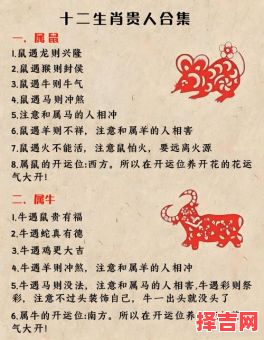 十二生肖贵人合集
一、属鼠
1.鼠遇龙则兴隆
2.鼠遇猴则封侯
3.鼠遇牛则牛气
4.鼠遇马则冲煞
5.注意和属马的人相冲
6.鼠遇羊则不祥，注意和属羊的人相害
7.鼠遇火不能活，注意鼠怕火，要远离火源
8.属鼠的开运位:西方。所以在开运位养开花的花运
气大开!
二、属牛
1.牛遇鼠贵有福
2.牛遇蛇真有德
3.牛遇鸡更大吉
4.牛遇羊则冲煞，注意和属羊的人相冲
5.牛遇马则没法，注意和属马的人相害,牛遇彩则祭
彩，注意不过头装饰自己，牛一出头就没头了
6.属牛的开运位:南方。所以在开运位养开花的花运
气大开!
择吉网